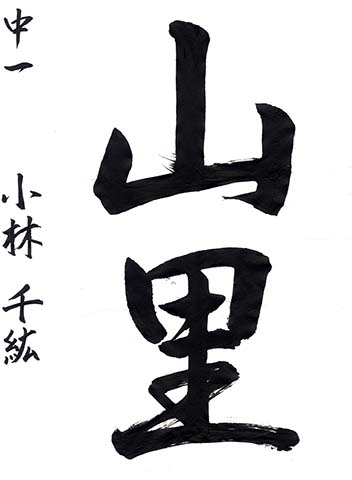 山里
中一 小林 千紘